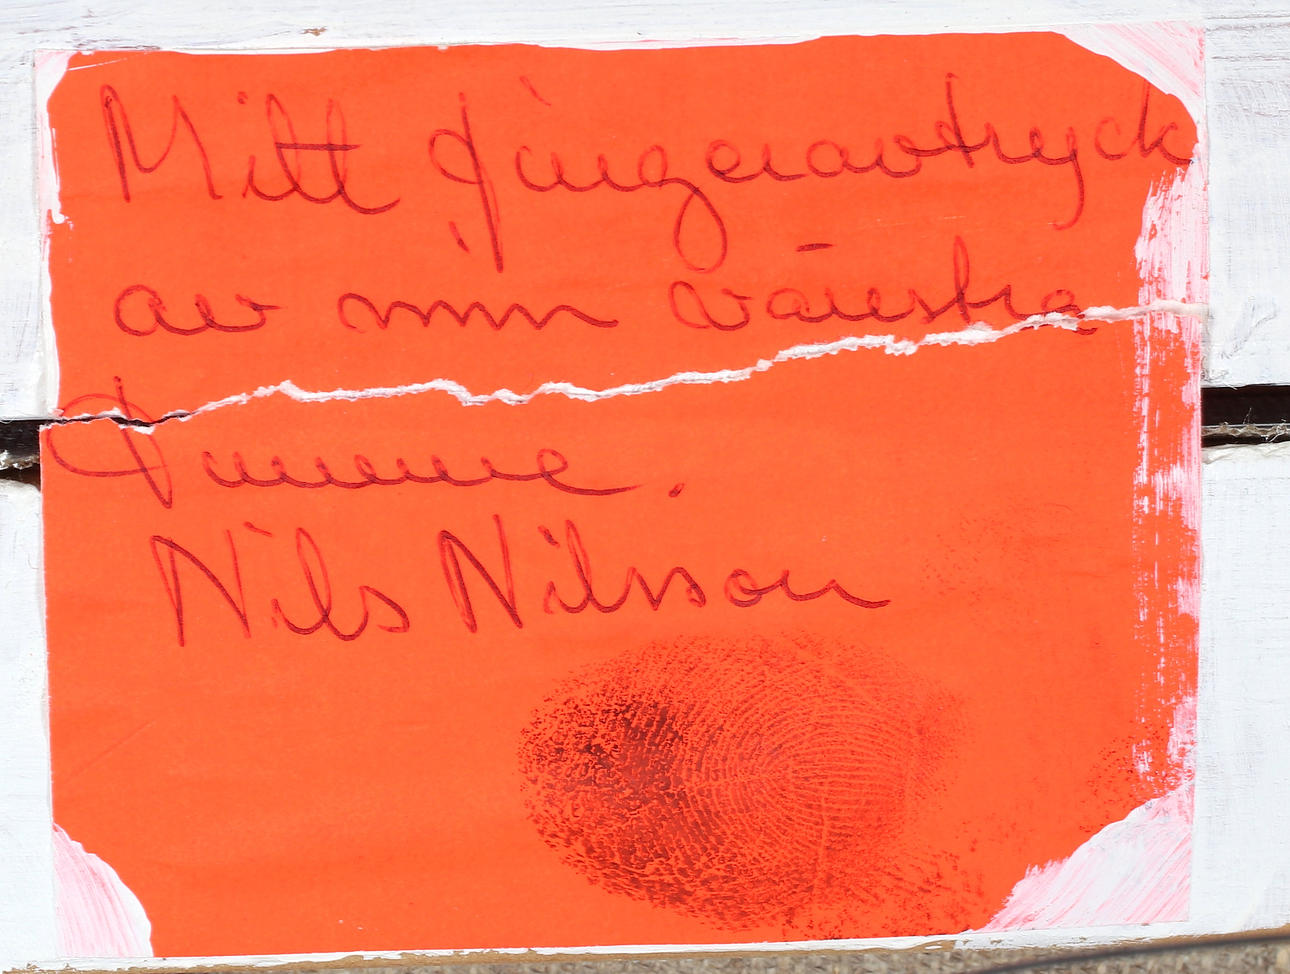 Mitt fingeravtryck
av min vänstra
Tumme.
Nils Nilsson